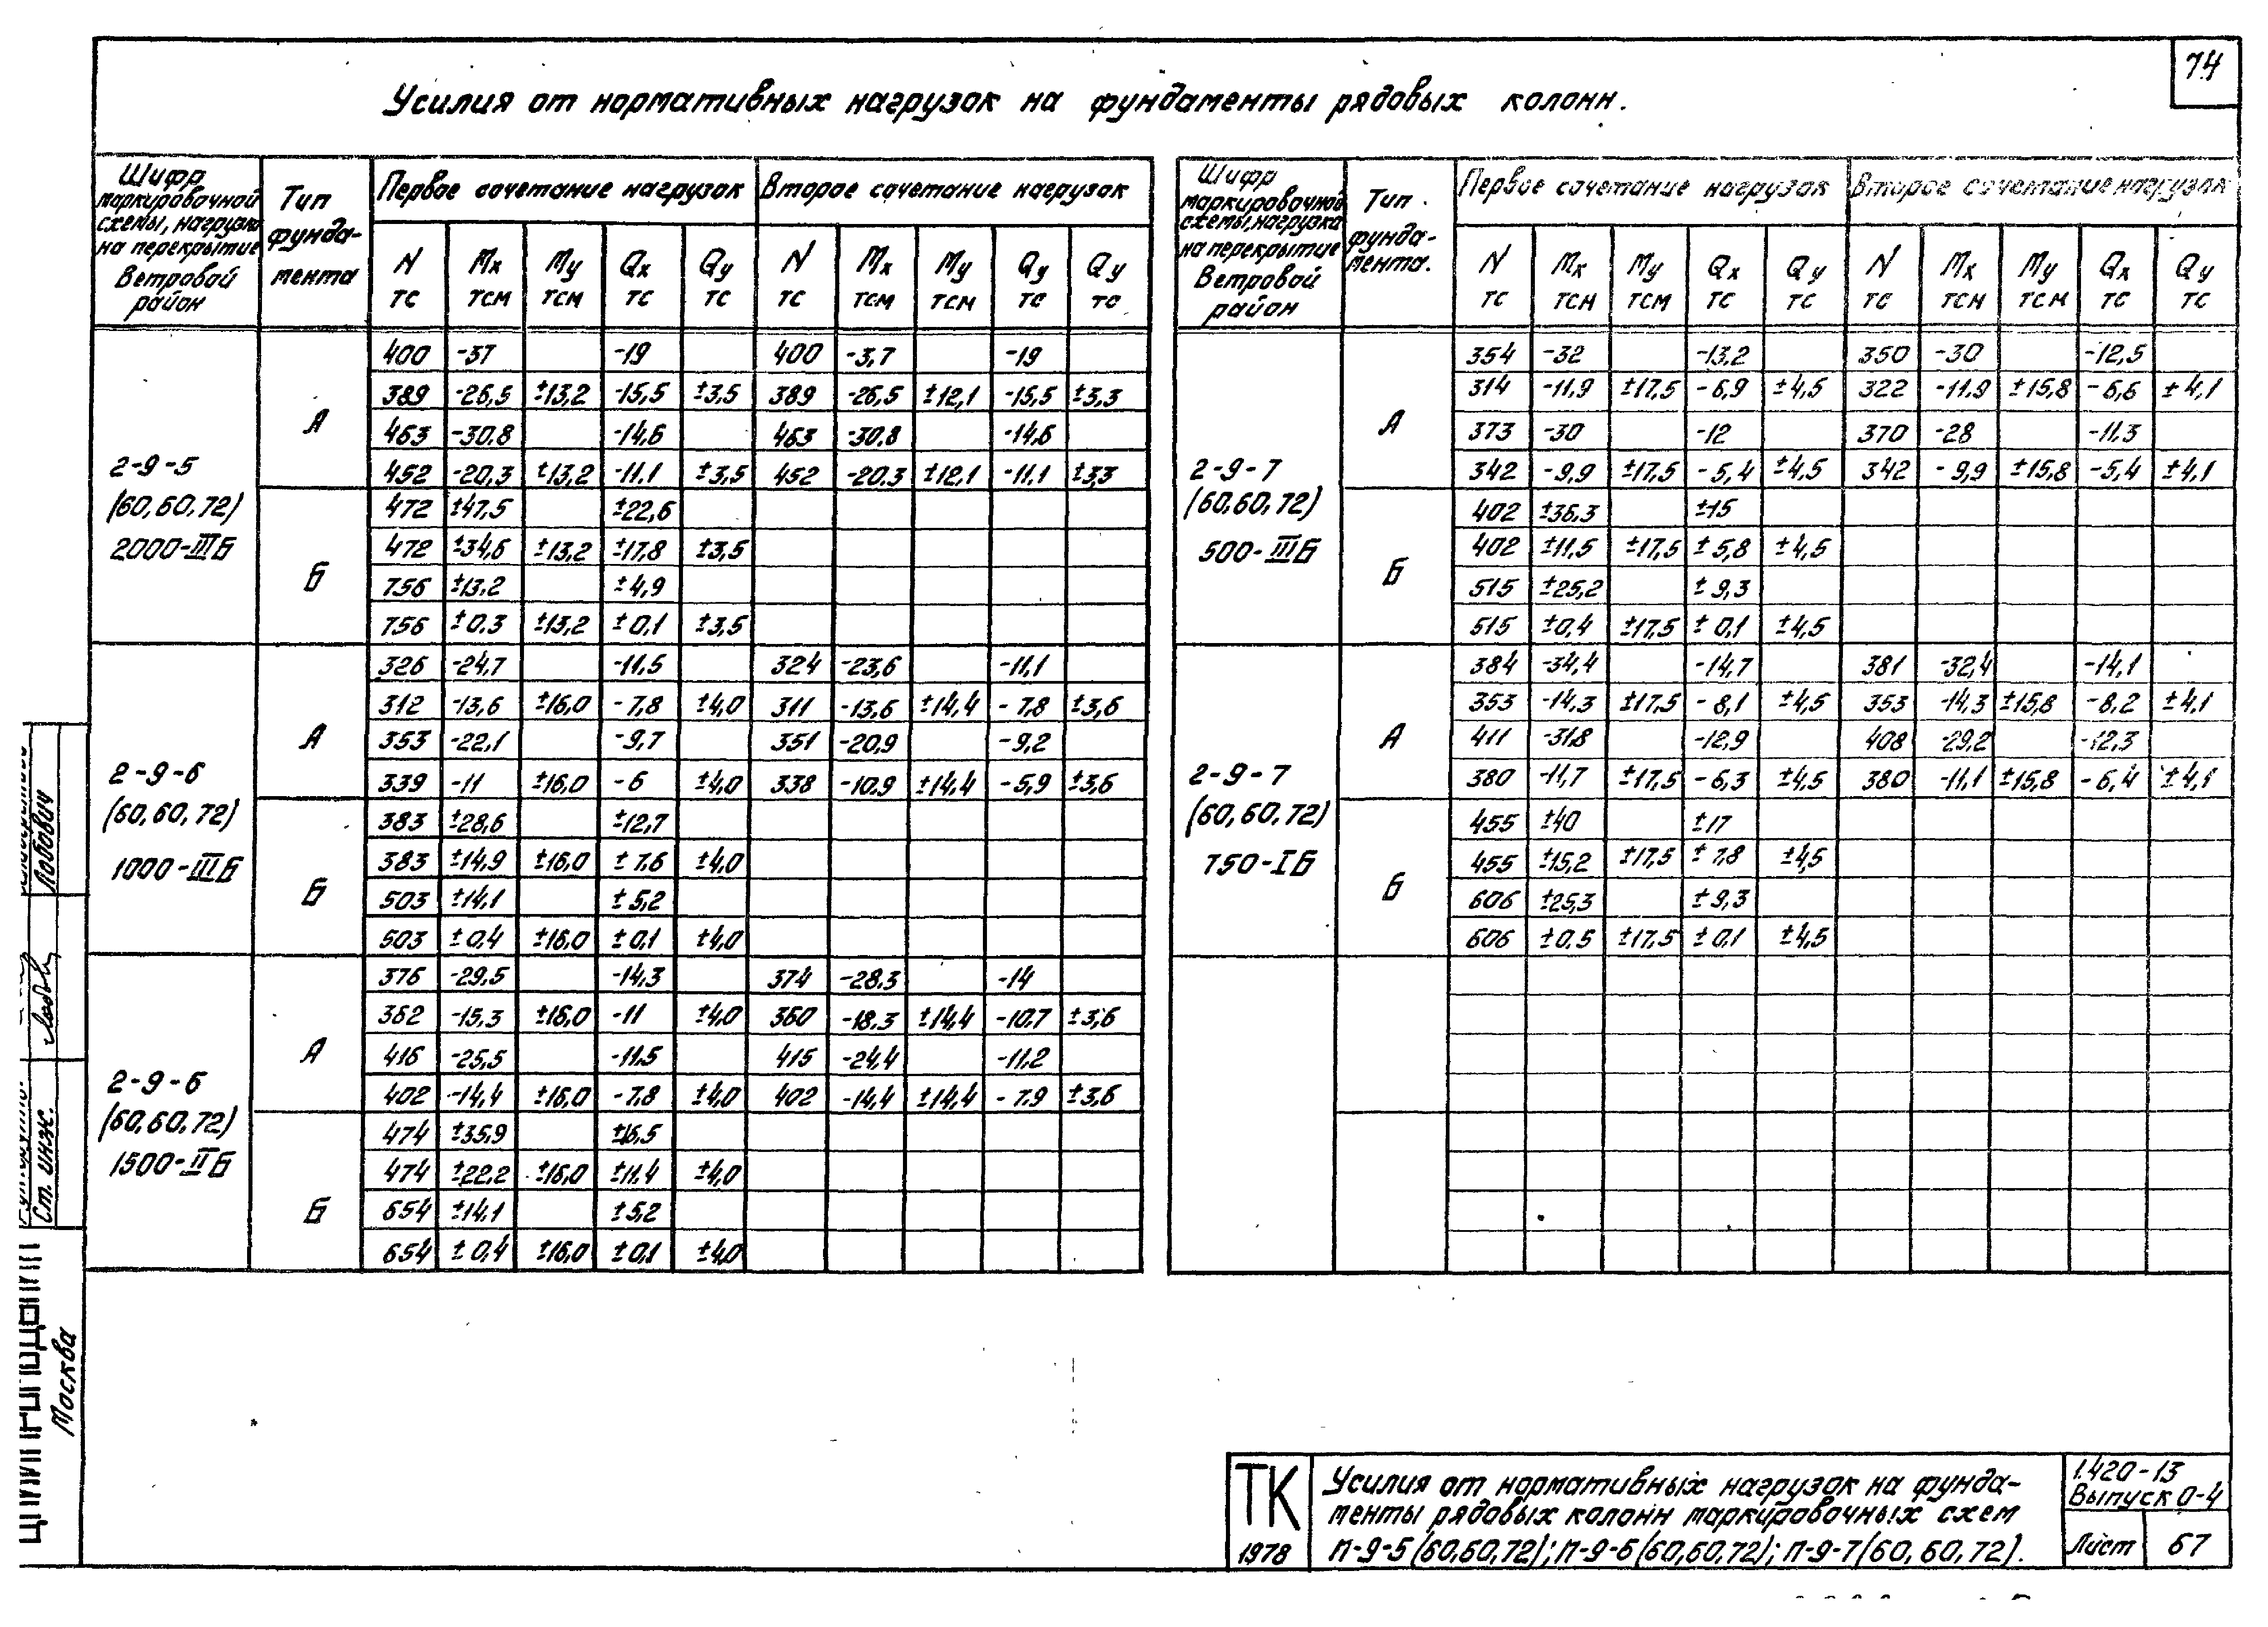 74
Усилия от нормативных нагрузок на фундаменты рядовых колонн.
Шифр маркировочной схемы, нагрузка на перекрытие Ветровой район
Тип фундамента
Первое сочетание нагрузок
Второе сочетание нагрузок
N тс Mx тсм My тсм Qx тс Qy тс N тс Mx тсм My тсм Qy тс Qy тс
2-9-5
(60,60,72)
2000-IIIБ
А
400 -37 -19 400 -3,7 -19
389 -26,5 ±13,2 -15,5 ±3,5 389 -26,5 ±12,1 -15,5 ±3,3
463 -30,8 -14,6 463 -30,8 -14,6
452 -20,3 ±13,2 -11,1 ±3,5 452 -20,3 ±12,1 -11,1 ±3,3
Б
472 ±47,5 ±22,6
472 ±34,6 ±13,2 ±17,8 ±3,5
756 ±13,2 ±4,9
756 ±0,3 ±13,2 ±0,1 ±3,5
2-9-6
(60,60,72)
1000-IIIБ
А
326 -24,7 -11,5 324 -23,6 -11,1
312 -13,6 ±16,0 -7,8 ±4,0 311 -13,6 ±14,4 -7,8 ±3,6
353 -22,1 -9,7 351 -20,9 -9,2
339 -11 ±16,0 -6 ±4,0 338 -10,9 ±14,4 -5,9 ±3,6
Б
383 ±28,6 ±12,7
383 ±14,9 ±16,0 ±7,6 ±4,0
503 ±14,1 ±5,2
503 ±0,4 ±16,0 ±0,1 ±4,0
2-9-6
(60,60,72)
1500-IIБ
А
376 -29,5 -14,3 374 -28,3 -14
362 -15,3 ±16,0 -11 ±4,0 360 -18,3 ±14,4 -10,7 ±3,6
416 -25,5 -11,5 415 -24,4 -11,2
402 -14,4 ±16,0 -7,8 ±4,0 402 -14,4 ±14,4 -7,9 ±3,6
Б
474 ±35,9 ±16,5
474 ±22,2 ±16,0 ±11,4 ±4,0
654 ±14,1 ±5,2
654 ±0,4 ±16,0 ±0,1 ±4,0
Шифр маркировочной схемы, нагрузка на перекрытие Ветровой район
Тип фундамента.
Первое сочетание нагрузок
Второе сочетание нагрузок
N тс Mx тсм My тсм Qx тс Qy тс N тс Mx тсм My тсм Qx тс Qy тс
2-9-7
(60,60,72)
500-IIIБ
А
354 -32 -13,2 350 -30 -12,5
314 -11,9 ±17,5 -6,9 ±4,5 322 -11,9 ±15,8 -6,6 ±4,1
373 -30 -12 370 -28 -11,3
342 -9,9 ±17,5 -5,4 ±4,5 342 -9,9 ±15,8 -5,4 ±4,1
Б
402 ±36,3 ±15
402 ±11,5 ±17,5 ±5,8 ±4,5
515 ±25,2 ±9,3
515 ±0,4 ±17,5 ±0,1 ±4,5
2-9-7
(60,60,72)
750-IБ
А
384 -34,4 -14,7 381 -32,4 -14,1
353 -14,3 ±17,5 -8,1 ±4,5 353 -14,3 ±15,8 -8,2 ±4,1
411 -31,8 -12,9 408 -29,2 -12,3
380 -11,7 ±17,5 -6,3 ±4,5 380 -11,1 ±15,8 -6,4 ±4,1
Б
455 ±40 ±17
455 ±15,2 ±17,5 ±7,8 ±4,5
606 ±25,3 ±9,3
606 ±0,5 ±17,5 ±0,1 ±4,5
Лобович
Ст. инж.
Москва
ТК
1978
Усилия от нормативных нагрузок на фунда-
менты рядовых колонн маркировочных схем
п-9-5(60,60,72); п-9-6(60,60,72); п-9-7(60,60,72).
1.420-13
Выпуск 0-4
Лист 67